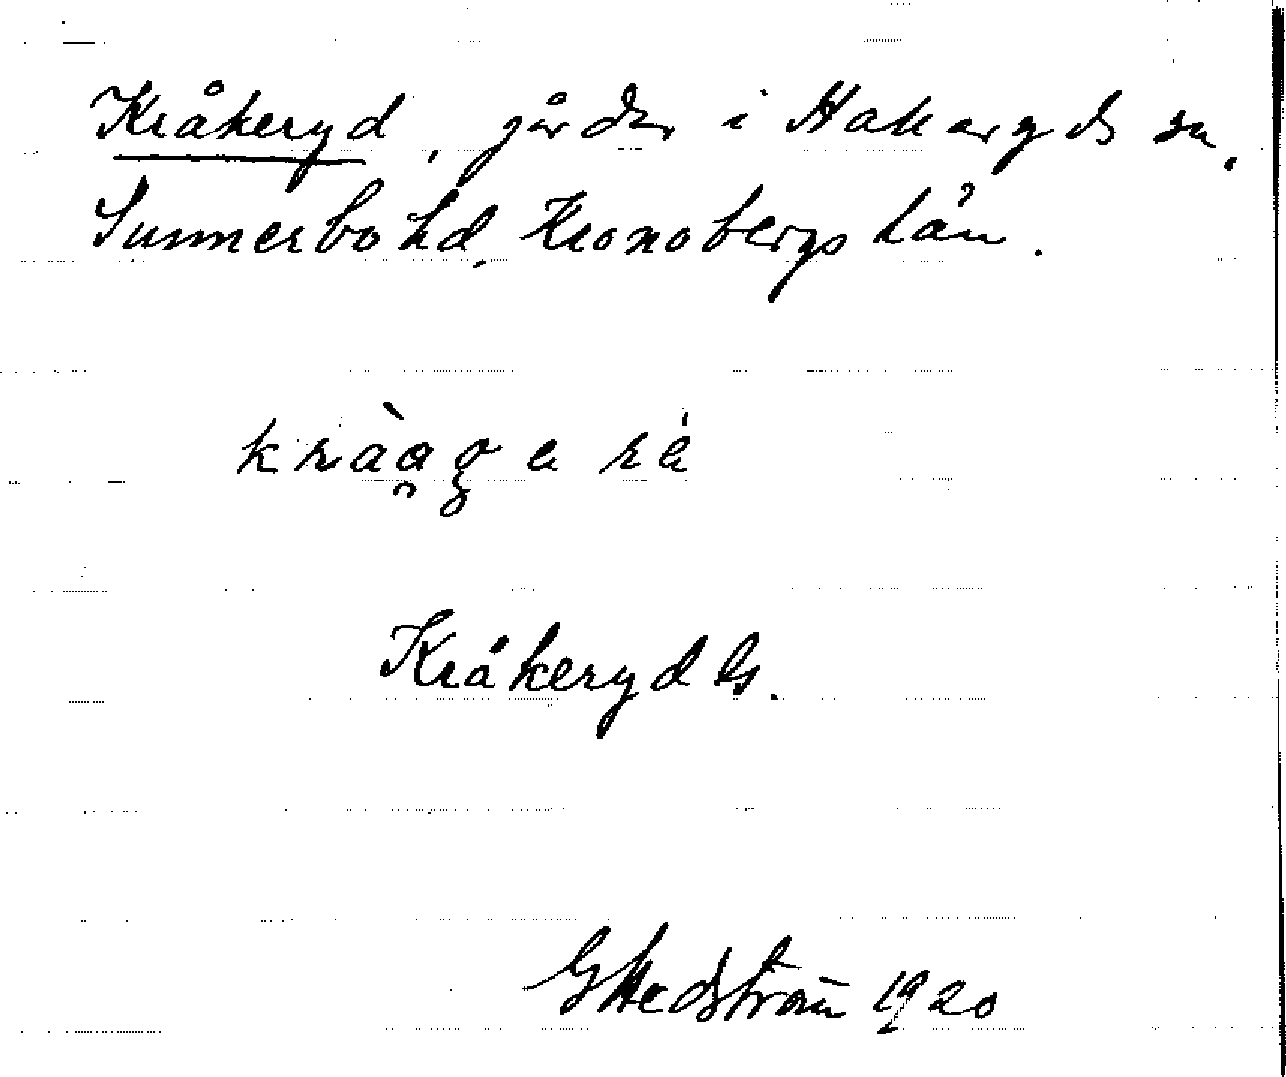 Kråkeryd, gårdar i Hakaryds sn,
Sunnerbo hd, Kronobergs län.
Kråkeryd ls.
G Hedström 1920